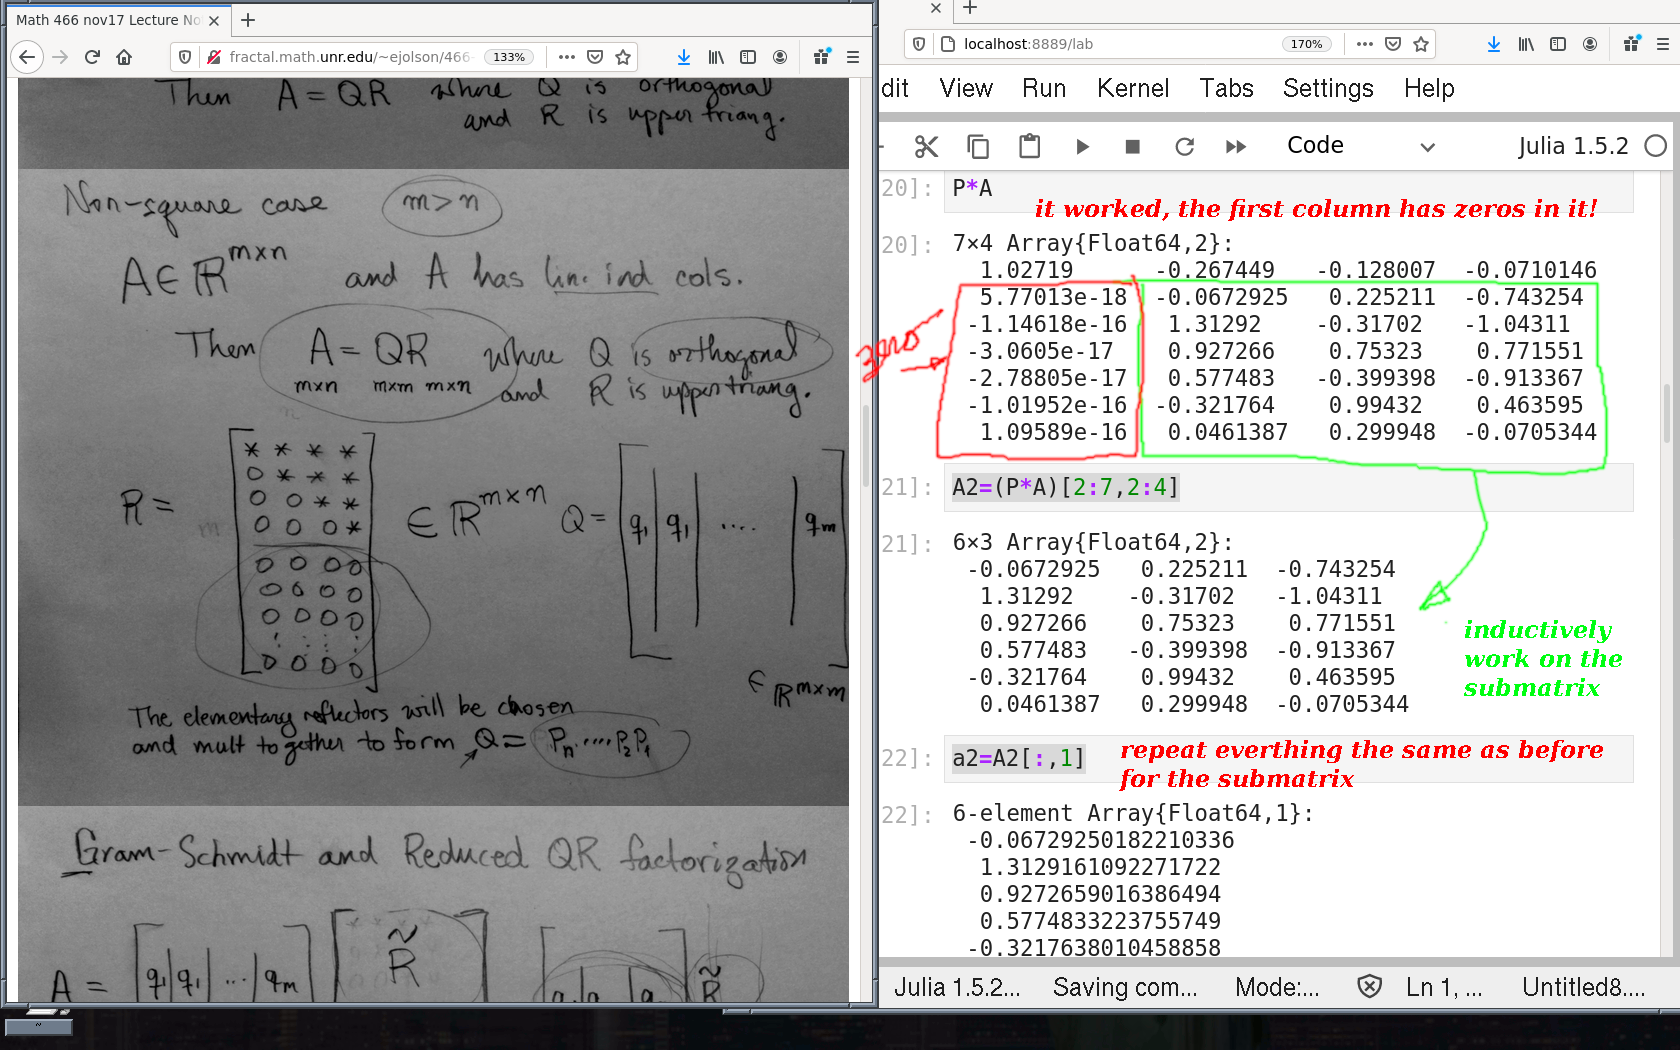 Math 466 nov17 Lecture No
fractal.math.unr.edu/~ejolson/466-
133%
Then A = QR where Q is orthogonal
and R is upper triang.
Non-square case m>n
A∈ℝ^{m×n} and A has lin. ind cols.
Then A = QR where Q is orthogonal
m×n m×m m×n and R is upper triang.
R =
* * * *
0 * * *
0 0 * *
0 0 0 *
0 0 0 0
0 0 0 0
0 0 0 0
⋮ ⋮ ⋮ ⋮
0 0 0 0
∈ ℝ^{m×n}
Q = [q₁|q₁| .... |qm]
∈ ℝ^{m×m}
The elementary reflectors will be chosen
and mult together to form Q = Pn.....P2P1
Gram-Schmidt and Reduced QR factorization
A = [q₁|q₁|...|qm] R̃
R̃
localhost:8889/lab
170%
dit View Run Kernel Tabs Settings Help
Code Julia 1.5.2
20]: P*A
it worked, the first column has zeros in it!
20]: 7×4 Array{Float64,2}:
1.02719 -0.267449 -0.128007 -0.0710146
5.77013e-18 -0.0672925 0.225211 -0.743254
-1.14618e-16 1.31292 -0.31702 -1.04311
-3.0605e-17 0.927266 0.75323 0.771551
-2.78805e-17 0.577483 -0.399398 -0.913367
-1.01952e-16 -0.321764 0.99432 0.463595
1.09589e-16 0.0461387 0.299948 -0.0705344
zero
21]: A2=(P*A)[2:7,2:4]
21]: 6×3 Array{Float64,2}:
-0.0672925 0.225211 -0.743254
1.31292 -0.31702 -1.04311
0.927266 0.75323 0.771551
0.577483 -0.399398 -0.913367
-0.321764 0.99432 0.463595
0.0461387 0.299948 -0.0705344
inductively
work on the
submatrix
22]: a2=A2[:,1]
repeat everthing the same as before
for the submatrix
22]: 6-element Array{Float64,1}:
-0.06729250182210336
1.3129161092271722
0.9272659016386494
0.5774833223755749
-0.3217638010458858
Julia 1.5.2... Saving com... Mode:... Ln 1, ... Untitled8....